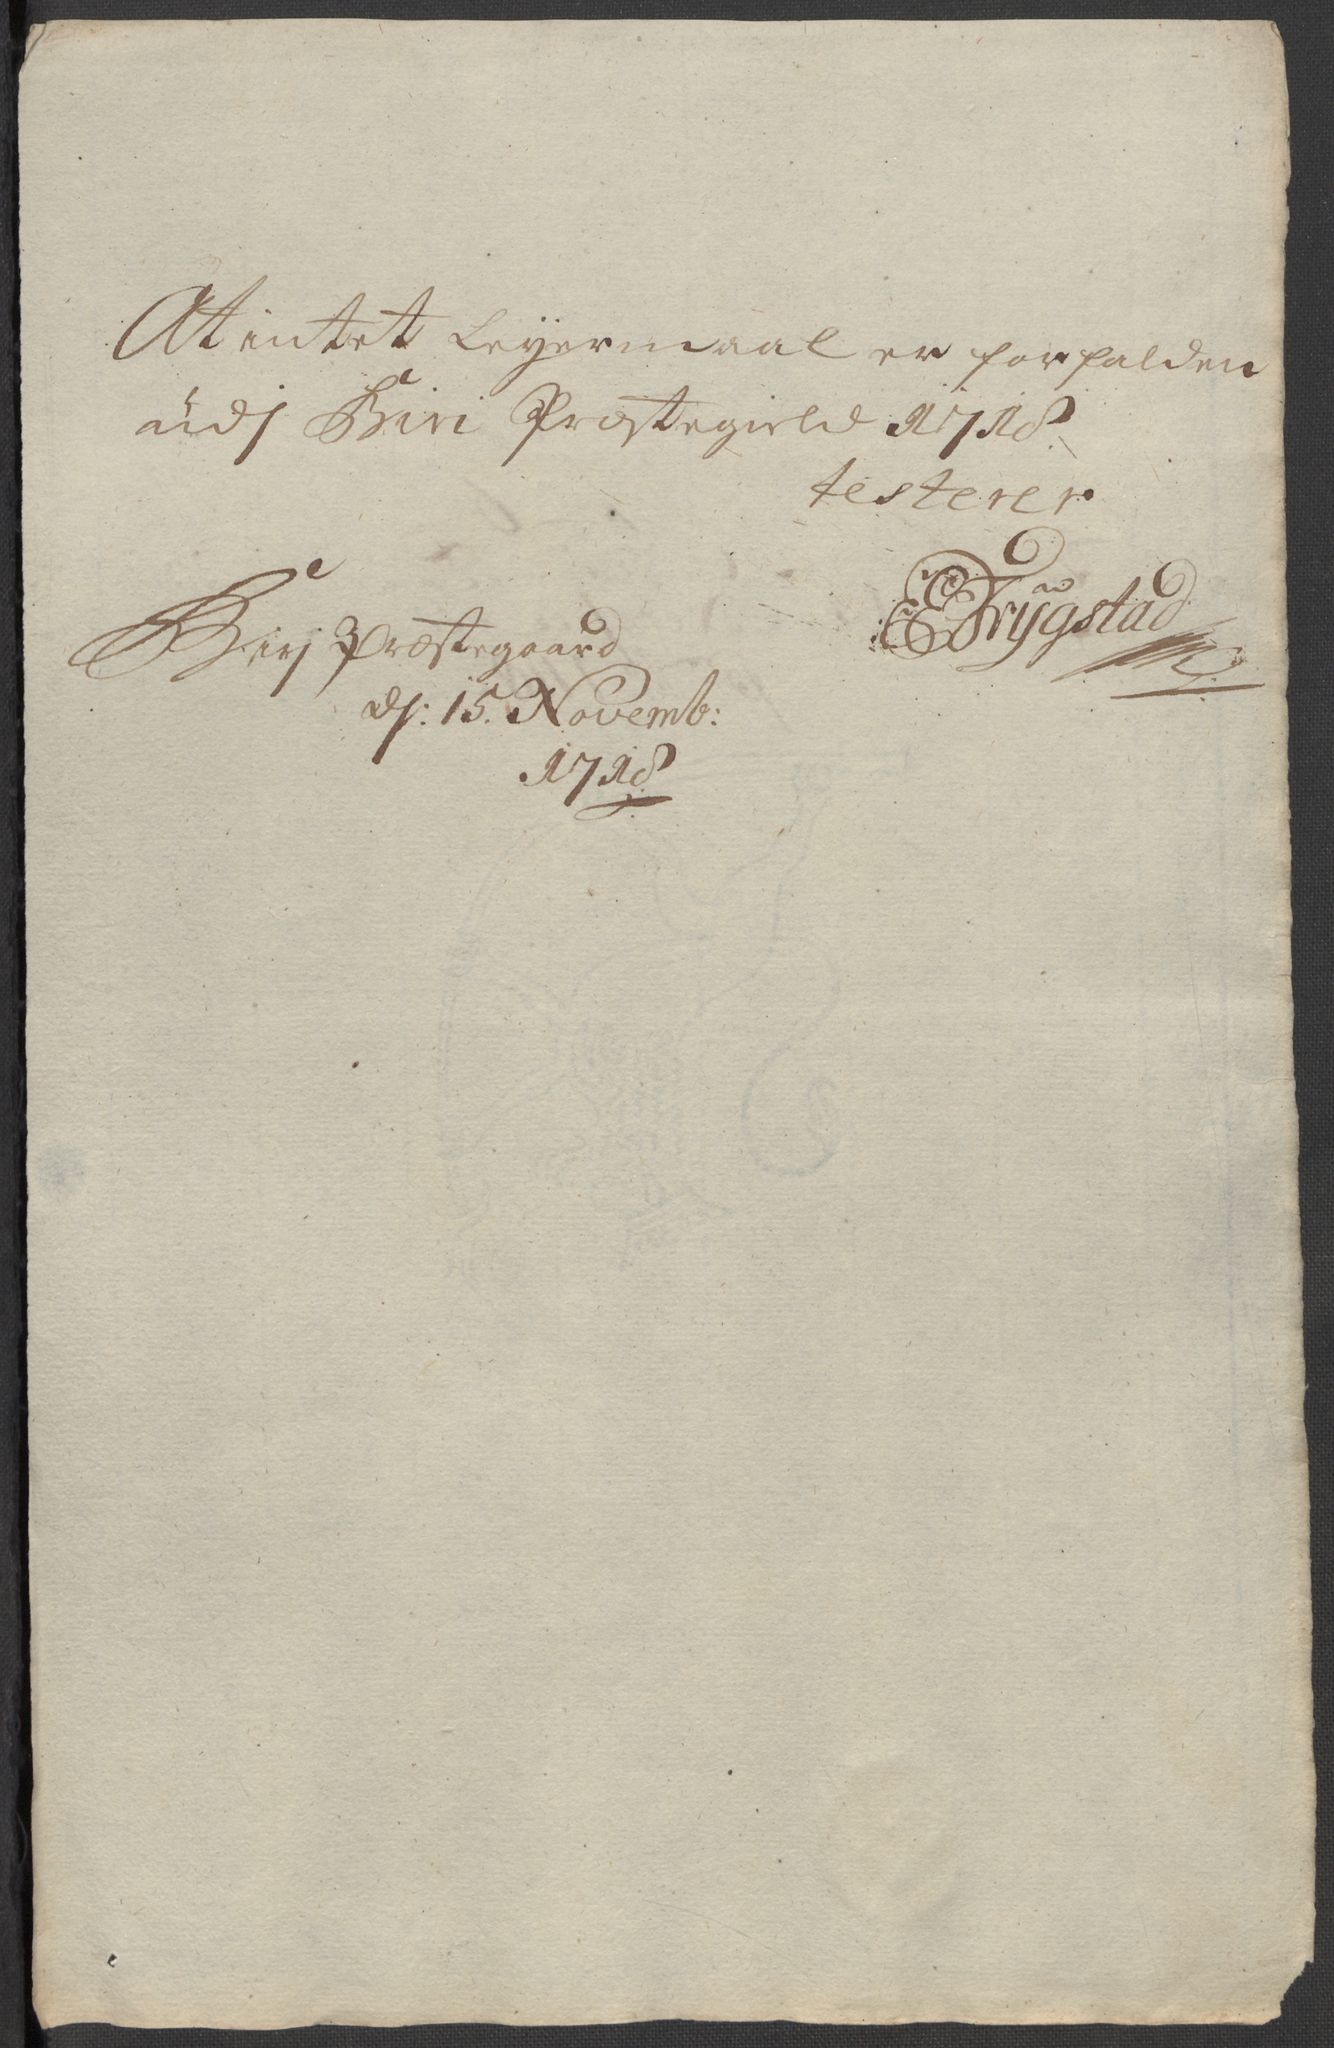 At intet Leyermaal er forfalden
udj Biri Præstegield 1718.
testerer
E Trygstad
Birj Præstegaard
dj: 15. Novemb:
1718.